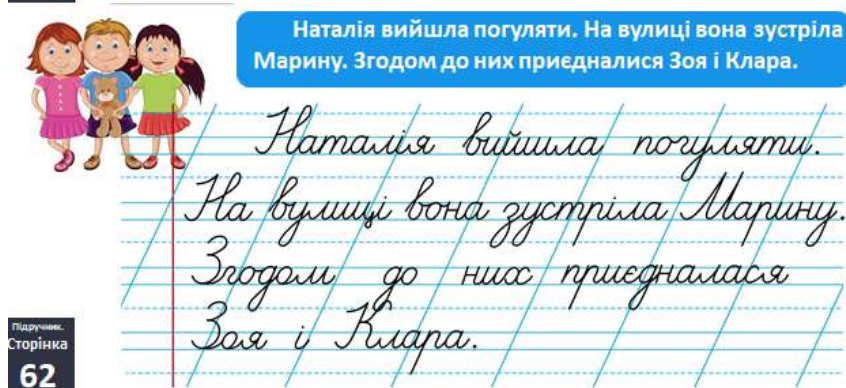 Наталія вийшла погуляти. На вулиці вона зустріла
Марину. Згодом до них приєдналися Зоя і Клара.
Наталія вийшла погуляти.
На вулиці вона зустріла Марину.
Згодом до них приєдналася
Зоя і Клара.
Підручник.
Сторінка
62